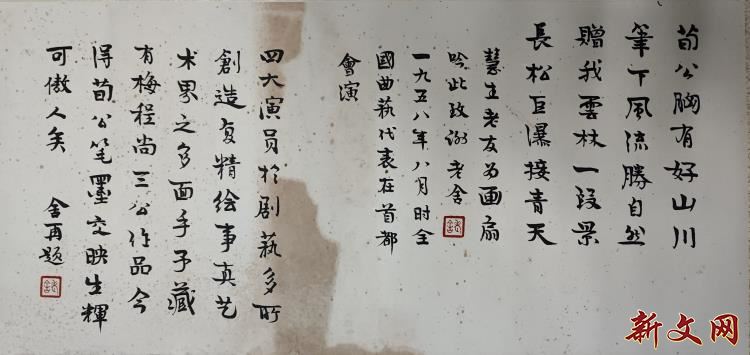 荀公胸有好山川
筆下風流勝自然
贈我雲林一段景
長松巨瀑接青天
慧生老友为画扇
吟此致谢老舍
一九五八年八月时全
國曲藝代表在首都
會演
四大演员於剧藝多所
創造复精绘事真艺
术界之多面手予藏
有梅程尚三公作品今
得荀公笔墨交映生輝
可傲人矣 舍再题
新文网